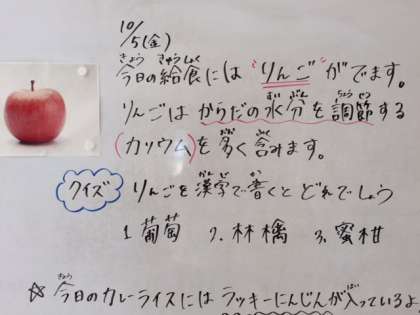 10/5(金)
今日の給食には "りんご" がでます。
りんごは からだの水分を調節する
(カリウム)を多く含みます。
クイズ りんごを漢字で書くと どれでしょう
1. 葡萄 2. 林檎 3. 蜜柑
☆ 今日のカレーライスには ラッキーにんじんが入っているよ